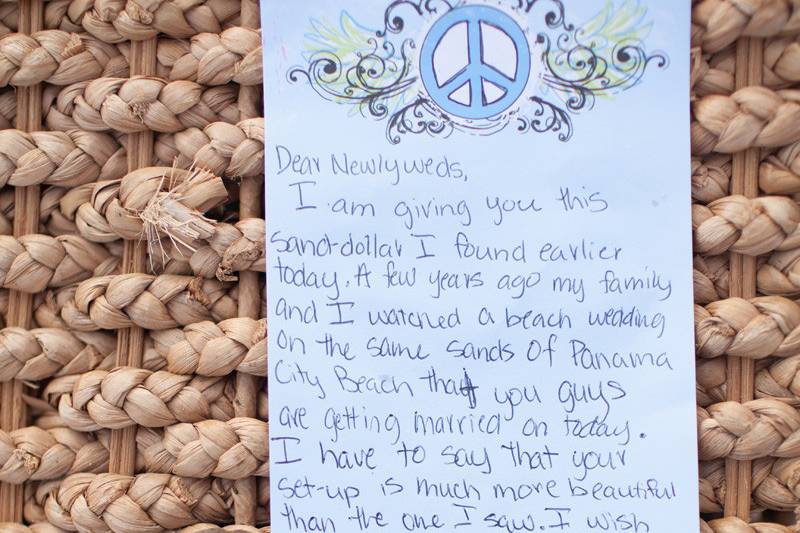 Dear Newlyweds,
I am giving you this
sand-dollar I found earlier
today. A few years ago my family
and I watched a beach wedding
on the same sands of Panama
City Beach that you guys
are getting married on today.
I have to say that your
set-up is much more beautiful
than the one I saw. I wish